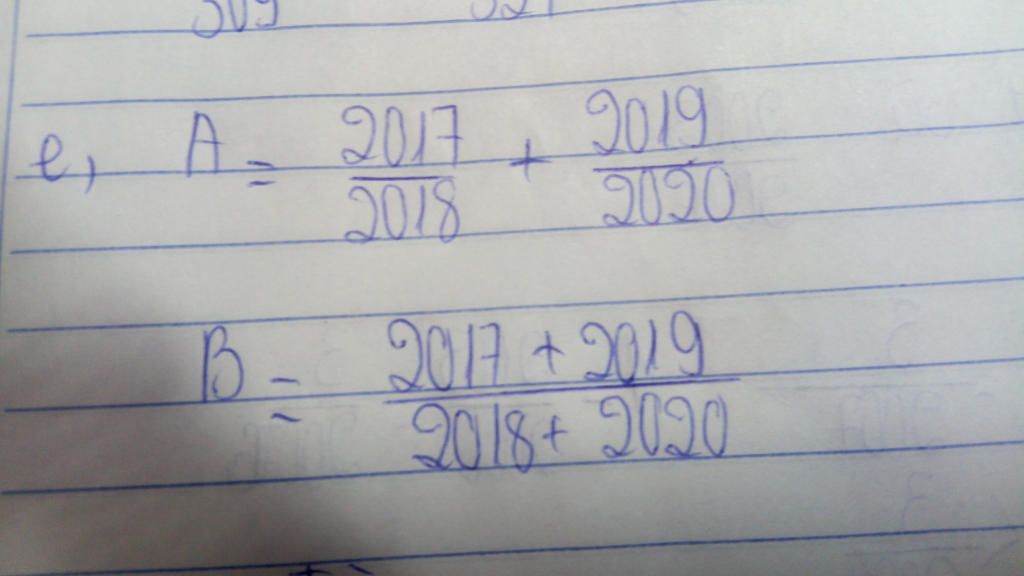 e, A = 2017/2018 + 2019/2020
B = 2017 + 2019/2018 + 2020